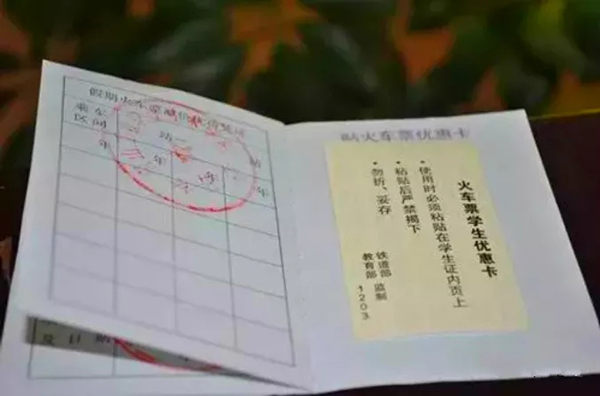 假期火车票减价优待凭证
乘车
区间
站
站
年
年
年
年
及日期
贴火车票优惠卡
火车票学生优惠卡
• 使用时必须粘贴在学生证内页上
• 粘贴后严禁揭下
• 勿折、妥存
铁道部
教育部
监制
1203